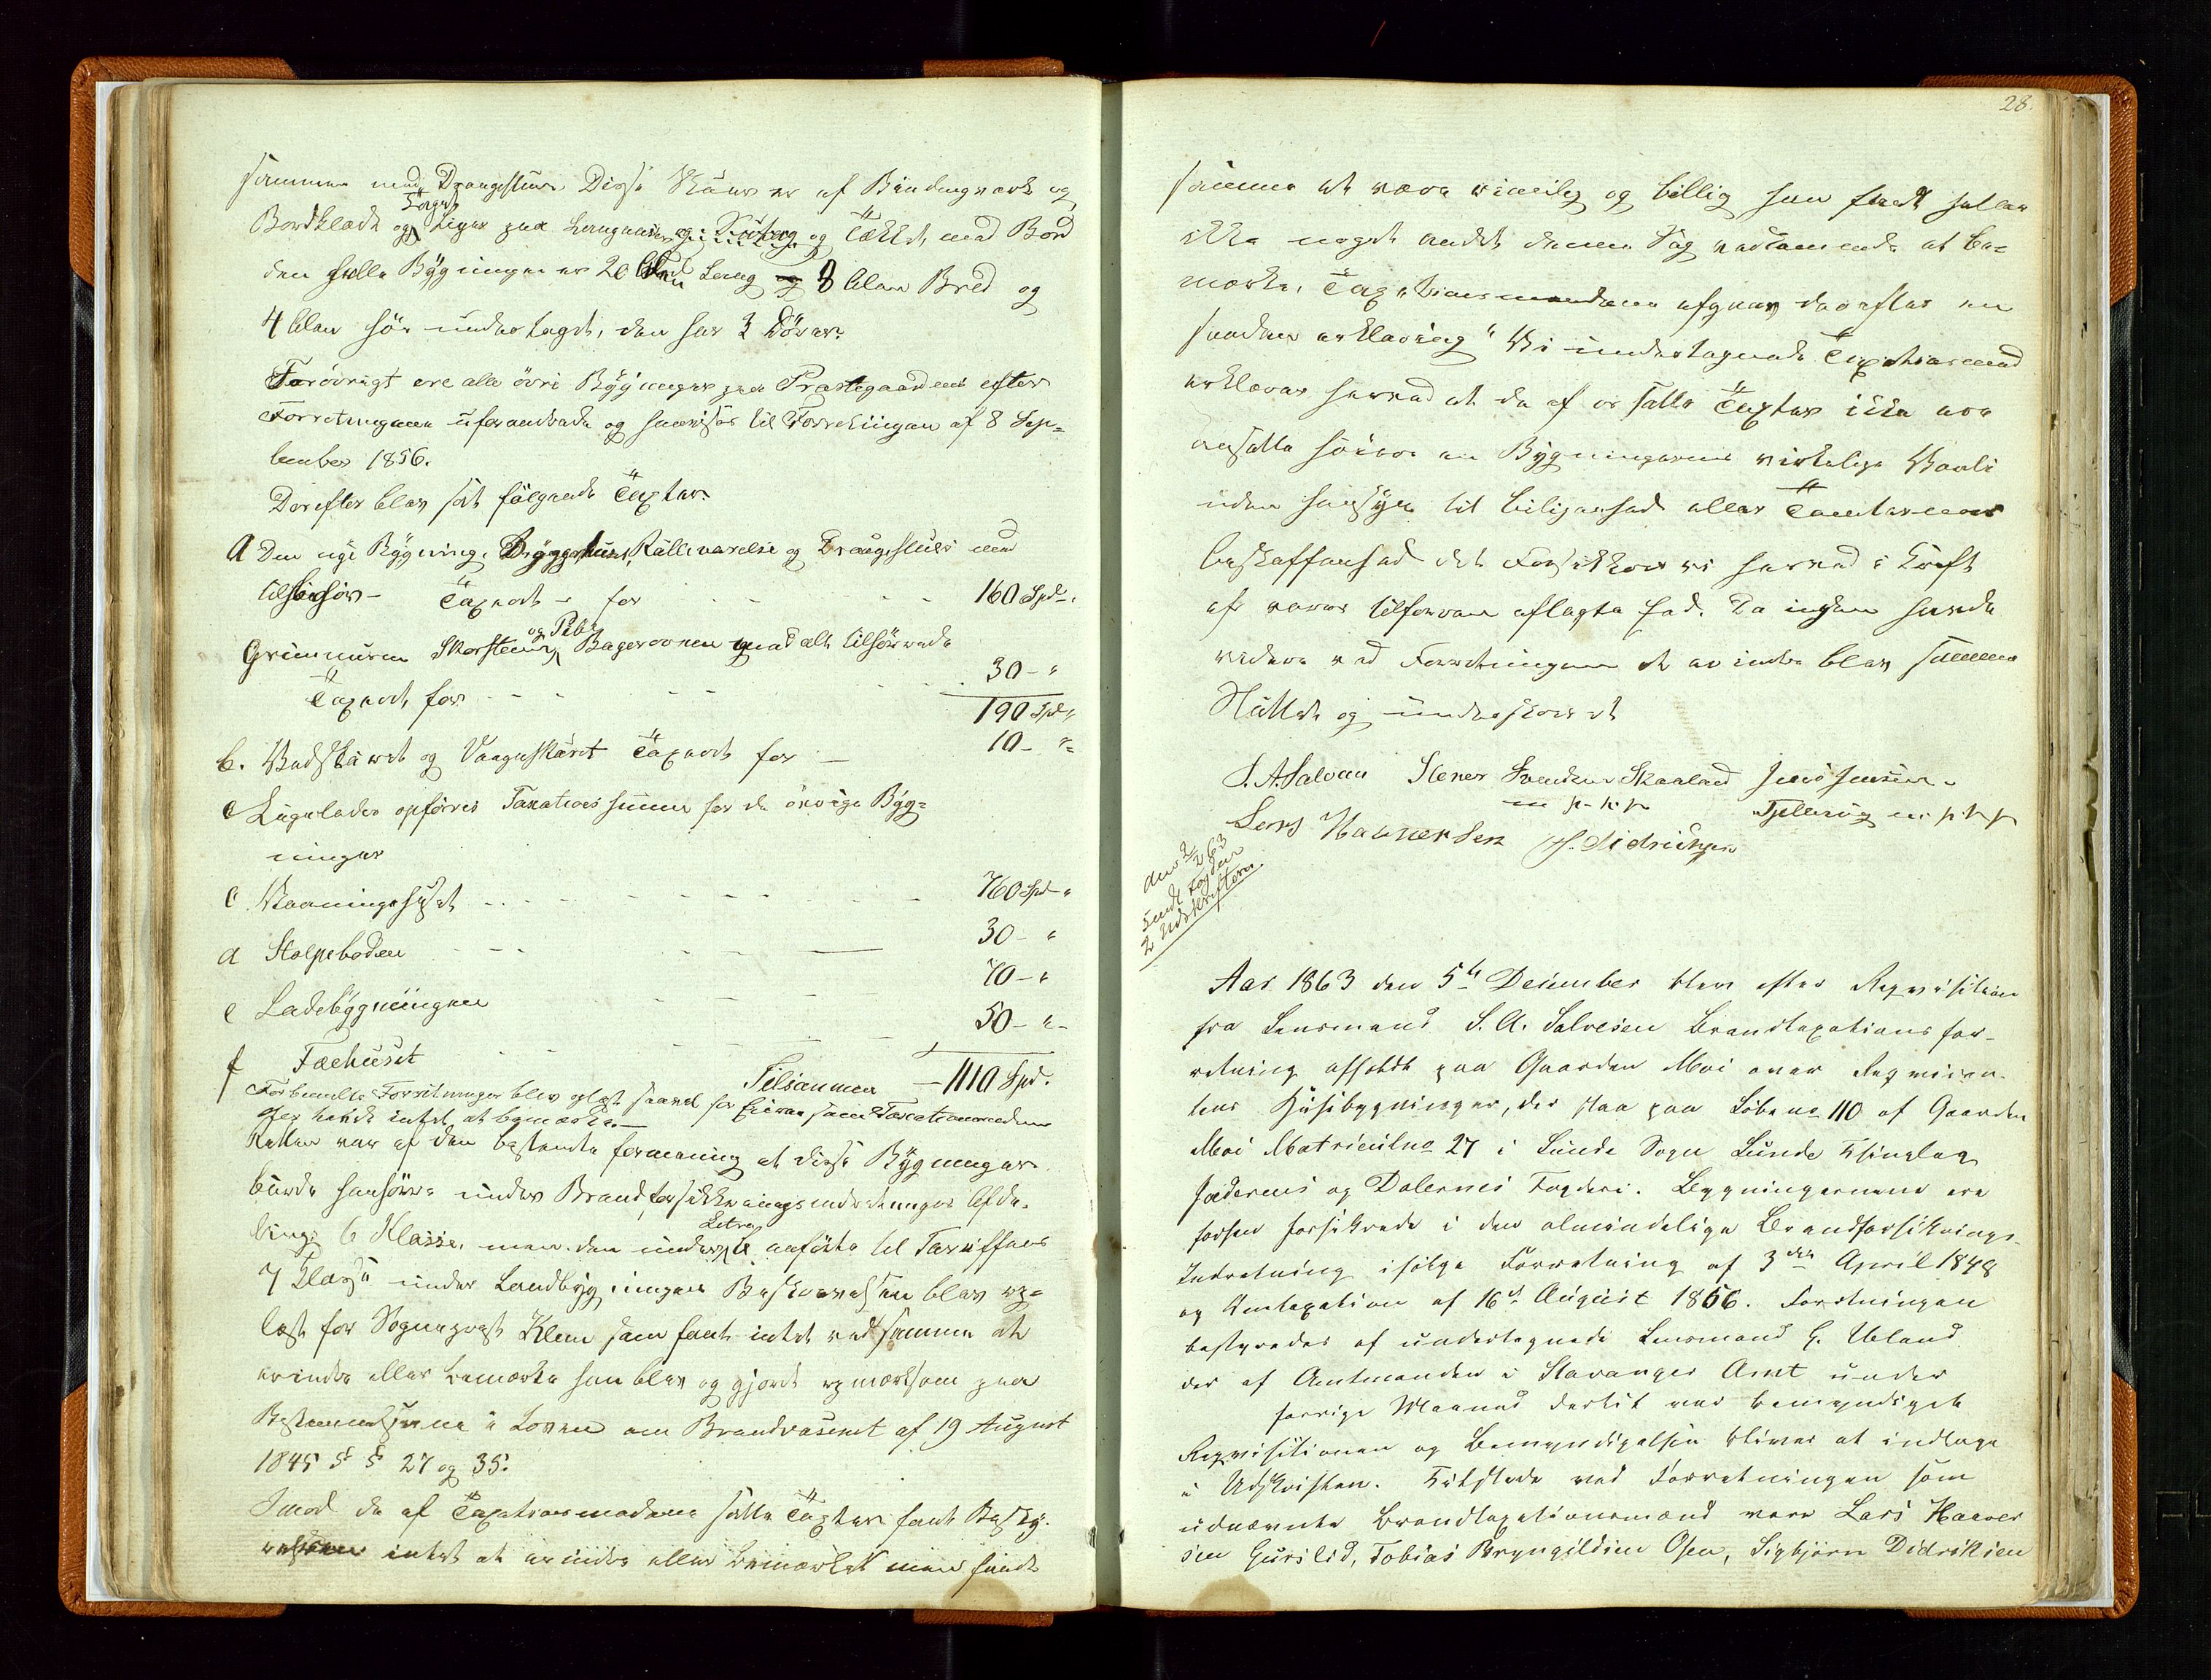 sammen med Drengestuen Disse Skure er af Bindingværk og
Bordklædt og Taget ligger paa og Tækket med Bord
den hele Bygningen er 20 Alen Lang og 8 Alen Bred og
4 Alen hoi under taget, den har 3 Dörer.
Forövrigt ere alle övri Bygninger paa Præstegaarden efter
Forretningerne uforandrede og henvises til Forretningen af 8 Sep=
tember 1856.
Derefter blev sat fölgende Taxter.
A Den nye Bygning, Bryggehus, Rulleværelse og Drengestue med
tilbehör - Taxeret - for 160 Spd.
Grunmuren Skorstenen og Pibe Bagerovnen med alt tilhörende
Taxeret for 30 - "
190 Spd "
b. Vedskuret og Vaagnskuret Taxeret for - 10 - "
Ligeledes opföres Taxations summen for de övrige Byg=
ninger
c Vaaningshuset 760 Spd "
d Stolpeboden 30 - "
e Ladebygningen 70 - "
f Fæehuset 50 - "
Tilsammen - 1110 Spd.
Forbemelte Forretninger blev oplæst saavel for Eieren som Taxationsmændene
der havde intet at bemærke. -
Retten var af den bestemte formening at disse Bygninger
burde henhöre under Brandforsikkringsindretningens Afde-
lings 6 Klasse, men den under Litra b anförte til Tariffens
7 Klasse under Landbygninger Beskrivelsen blev op=
læst for Sogneprest Klem som fant intet ved samme at
erindre eller bemærke han blev og gjordt opmærksom paa
Bestemmelserne i Loven om Brandvæsenet af 19 August
1845 § § 27 og 35.
Imod de af Taxationsmændene satte Taxter fant Besty-
relsen intet at erindre eller bemærket men fandt
28.
samme at være rimelig og billig han fandt heller
ikke noget andet denne Sag vedkommende at be=
mærke, Taxationsmændene afgav derefter en
saadan erklæring "Vi undertegnede Taxationsmænd
erklærer herved at de af os satte Taxter ikke ere
ansatte höiere en Bygningernes virkelige Værdi
uden hensyn til beligenhed eller Tomternes
beskaffenhed det Forsikkrer vi herved i Kraft
af vores tilforn aflagte Eed. Da ingen havde
videre ved Forretningen at erindre blev samme
Sluttet og underskrevet
S. A. Salvesen Stener Svendsen Skaaland Jens Jensen
m. p. P. Tjellaug m. p. P
Lars Haaversen S. Didriksen
den 2/2 63
sendt Fogden
2 Udskrifter.
Aar 1863 den 5te December blev efter Reqvisition
fra Lensmand S. A. Salvesen Brandtaxationsfor-
retning afholdt paa Gaarden Moi over Reqviren-
tens Husebygninger, der staa paa Löbeno 110 af Gaarden
Moi Matriculno 27 i Lunde Sogn Lunde Thinglag
Jæderens og Dalernes Fogderi. Bygningerne ere
forhen forsikrede i den almindelige Brandforsikrings-
Indretning ifölge Forretning af 3die April 1848
og Omtaxation af 16de August 1856. Forretningen
bestyredes af undertegnede Lensmand G. Ueland
der af Amtmanden i Stavanger Amt under
forrige Maaned dertil var bemyndiget
Reqvisitionen og Bemyndigelsen bliver at indtage
i Udskriften. Tilstede ved Forretningen som
udnævnte Brandtaxationsmænd vare Lars Haaver
sen Gurslid, Tobias Bryngildsen Osen, Sigbjörn Didriksen